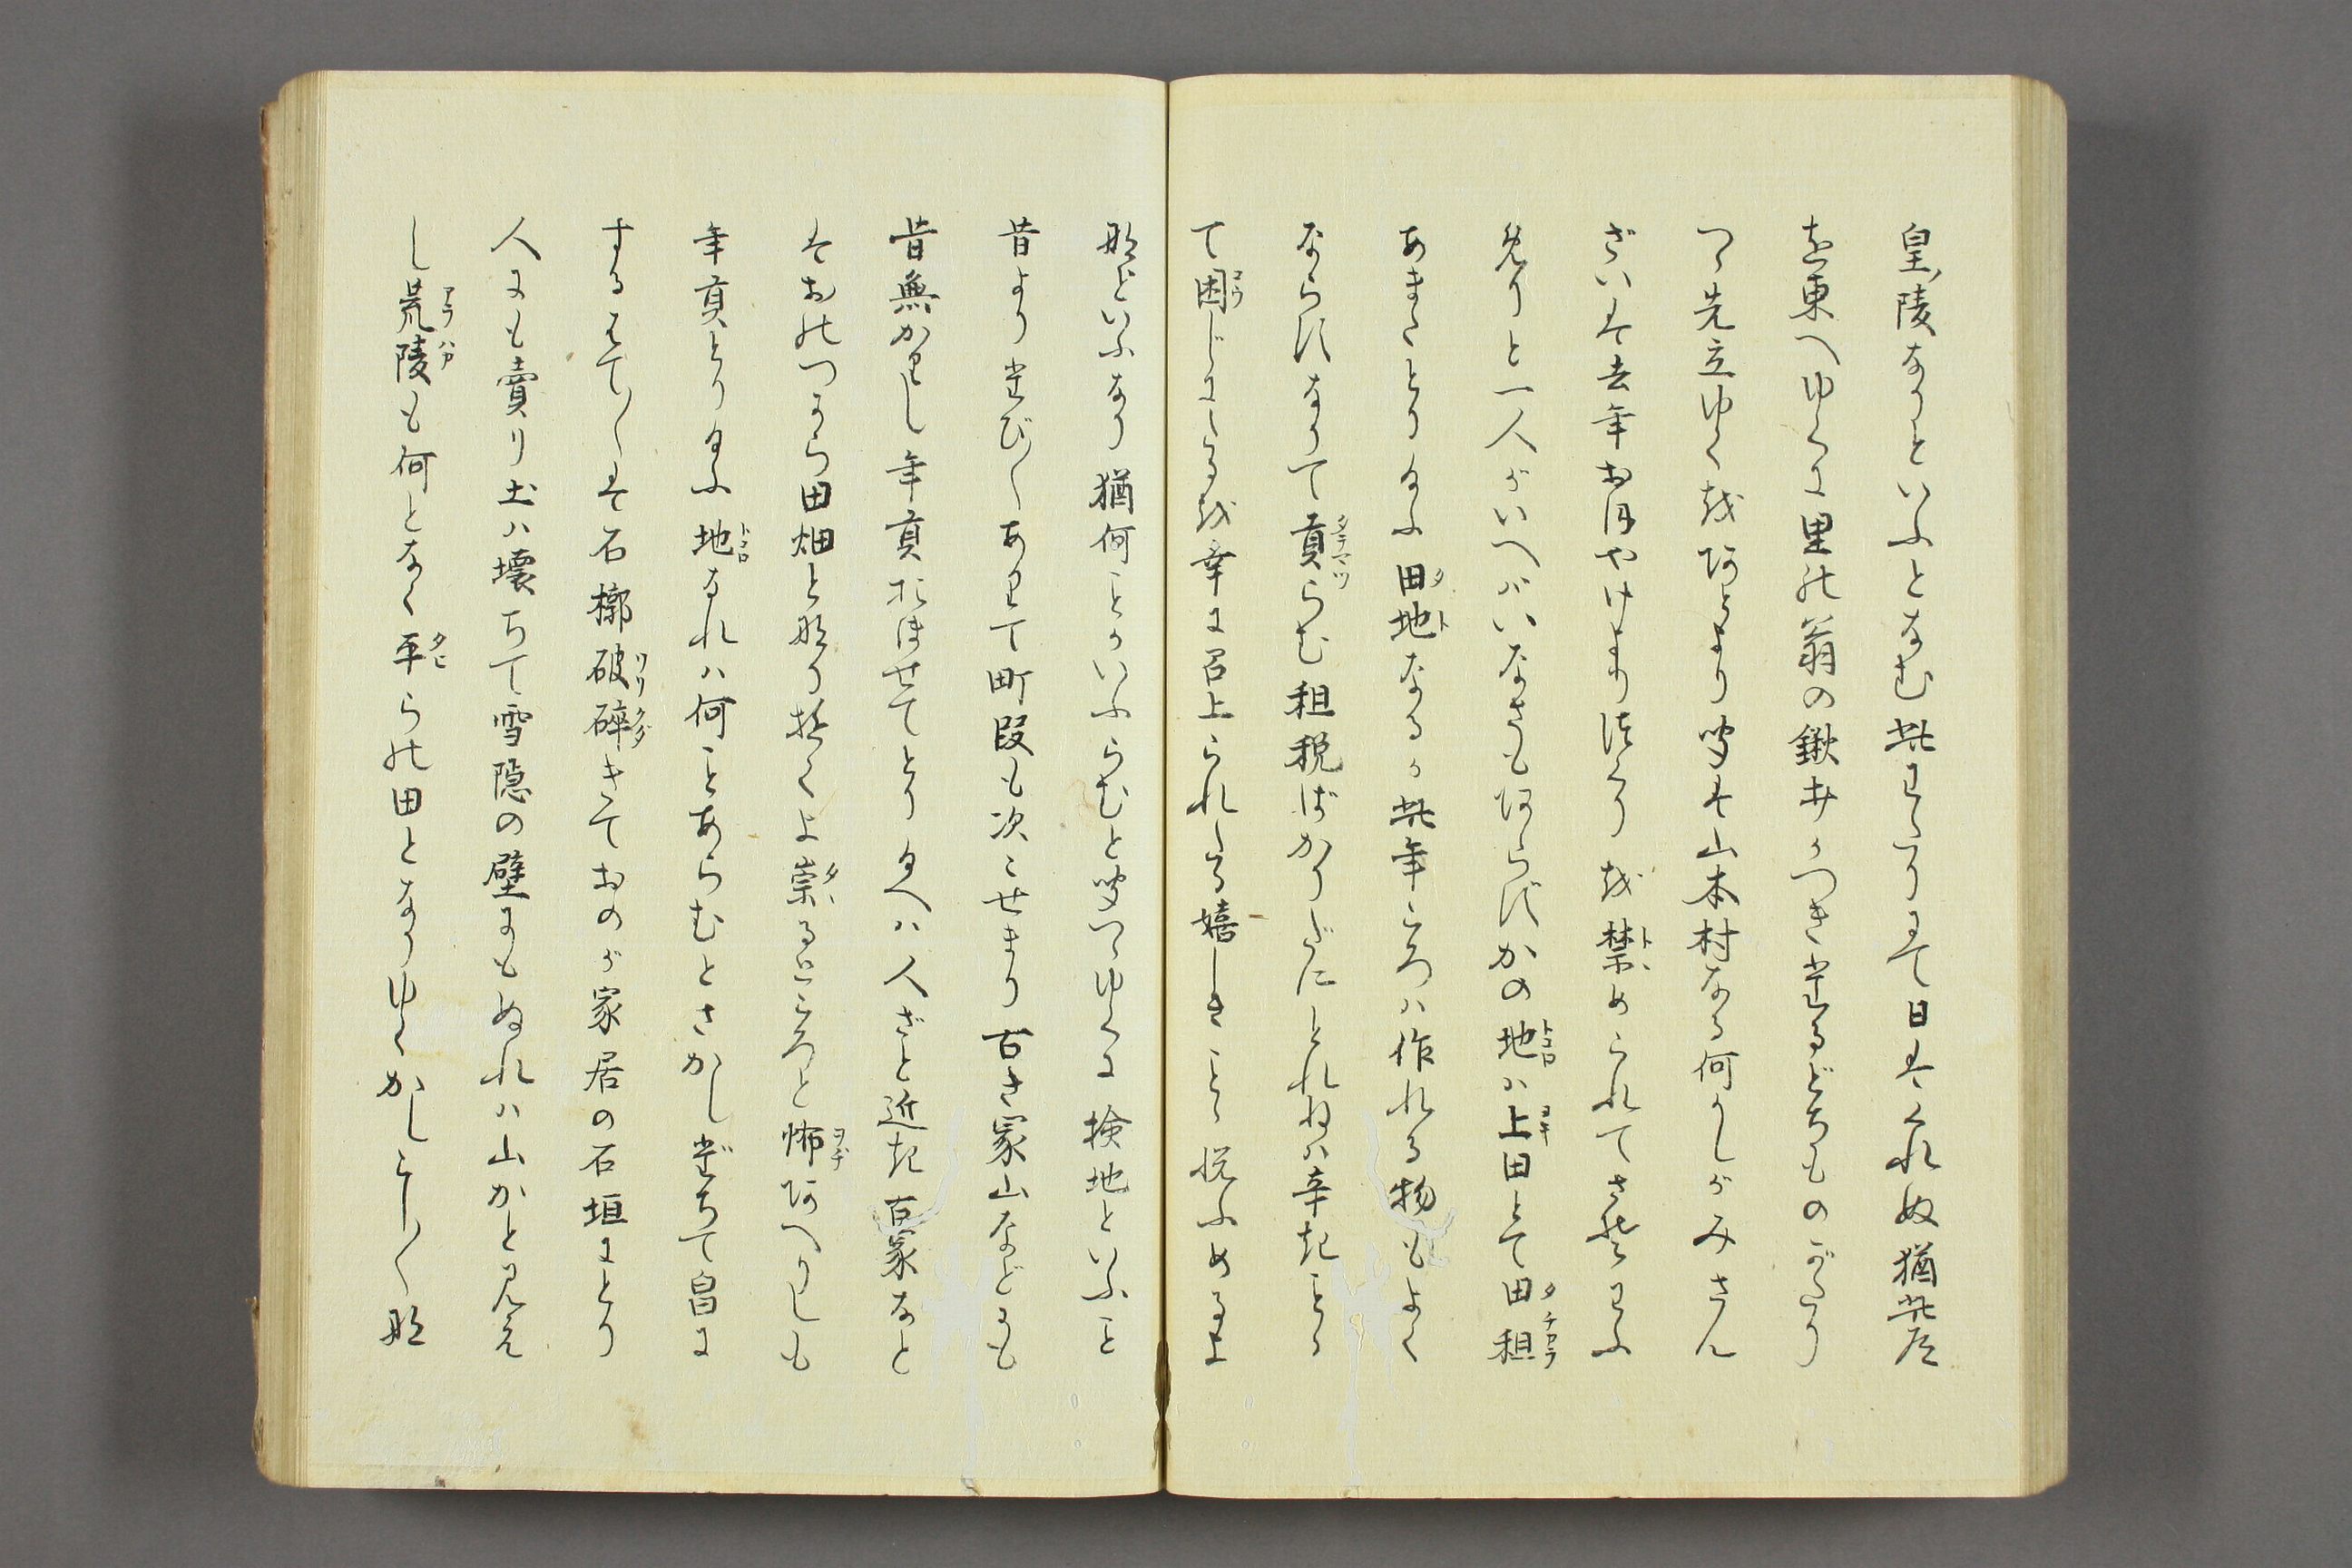 皇陵なりといふとなむ此わたりにて日はくれぬ猶此左
を東へゆくに里の翁の鍬かつきたるどちものがたり
つゝ先立ゆくをあとより聞は山本村なる何かしがみさん
ざいは去年おほやけより作りを禁められてさそわふ
見りと一人がいへバいなさもあらずかの地ハ上田とて田租
あまたとり給ふ田地なるか此年ころハ作れる物もよく
ならずなりて貢らむ租税ばかりだにとれねハ辛きことゝ
て困じにたるを幸に召上られたる嬉しきことゝ悦ふめるよ
などいふなり猶何ことかいふらむと聞つゝゆくに検地といふこと
昔よりたび〳〵ありて町段も次々せまり古き冢山などにも
昔無かりし年貢おほせてとり給へハ人ざと近き古冢なと
はおのつから田畑となり抔くよ祟るところと怖あへりしも
年貢とり給ふ地なれハ何ことあらむとさかしだちて畠に
するはて〳〵は石槨破碎きておのが家居の石垣にとり
人にも賣り土ハ壊ちて雪隠の壁にもぬれハ山かと見え
し荒陵も何となく平らの田となりゆくかしこし〳〵な